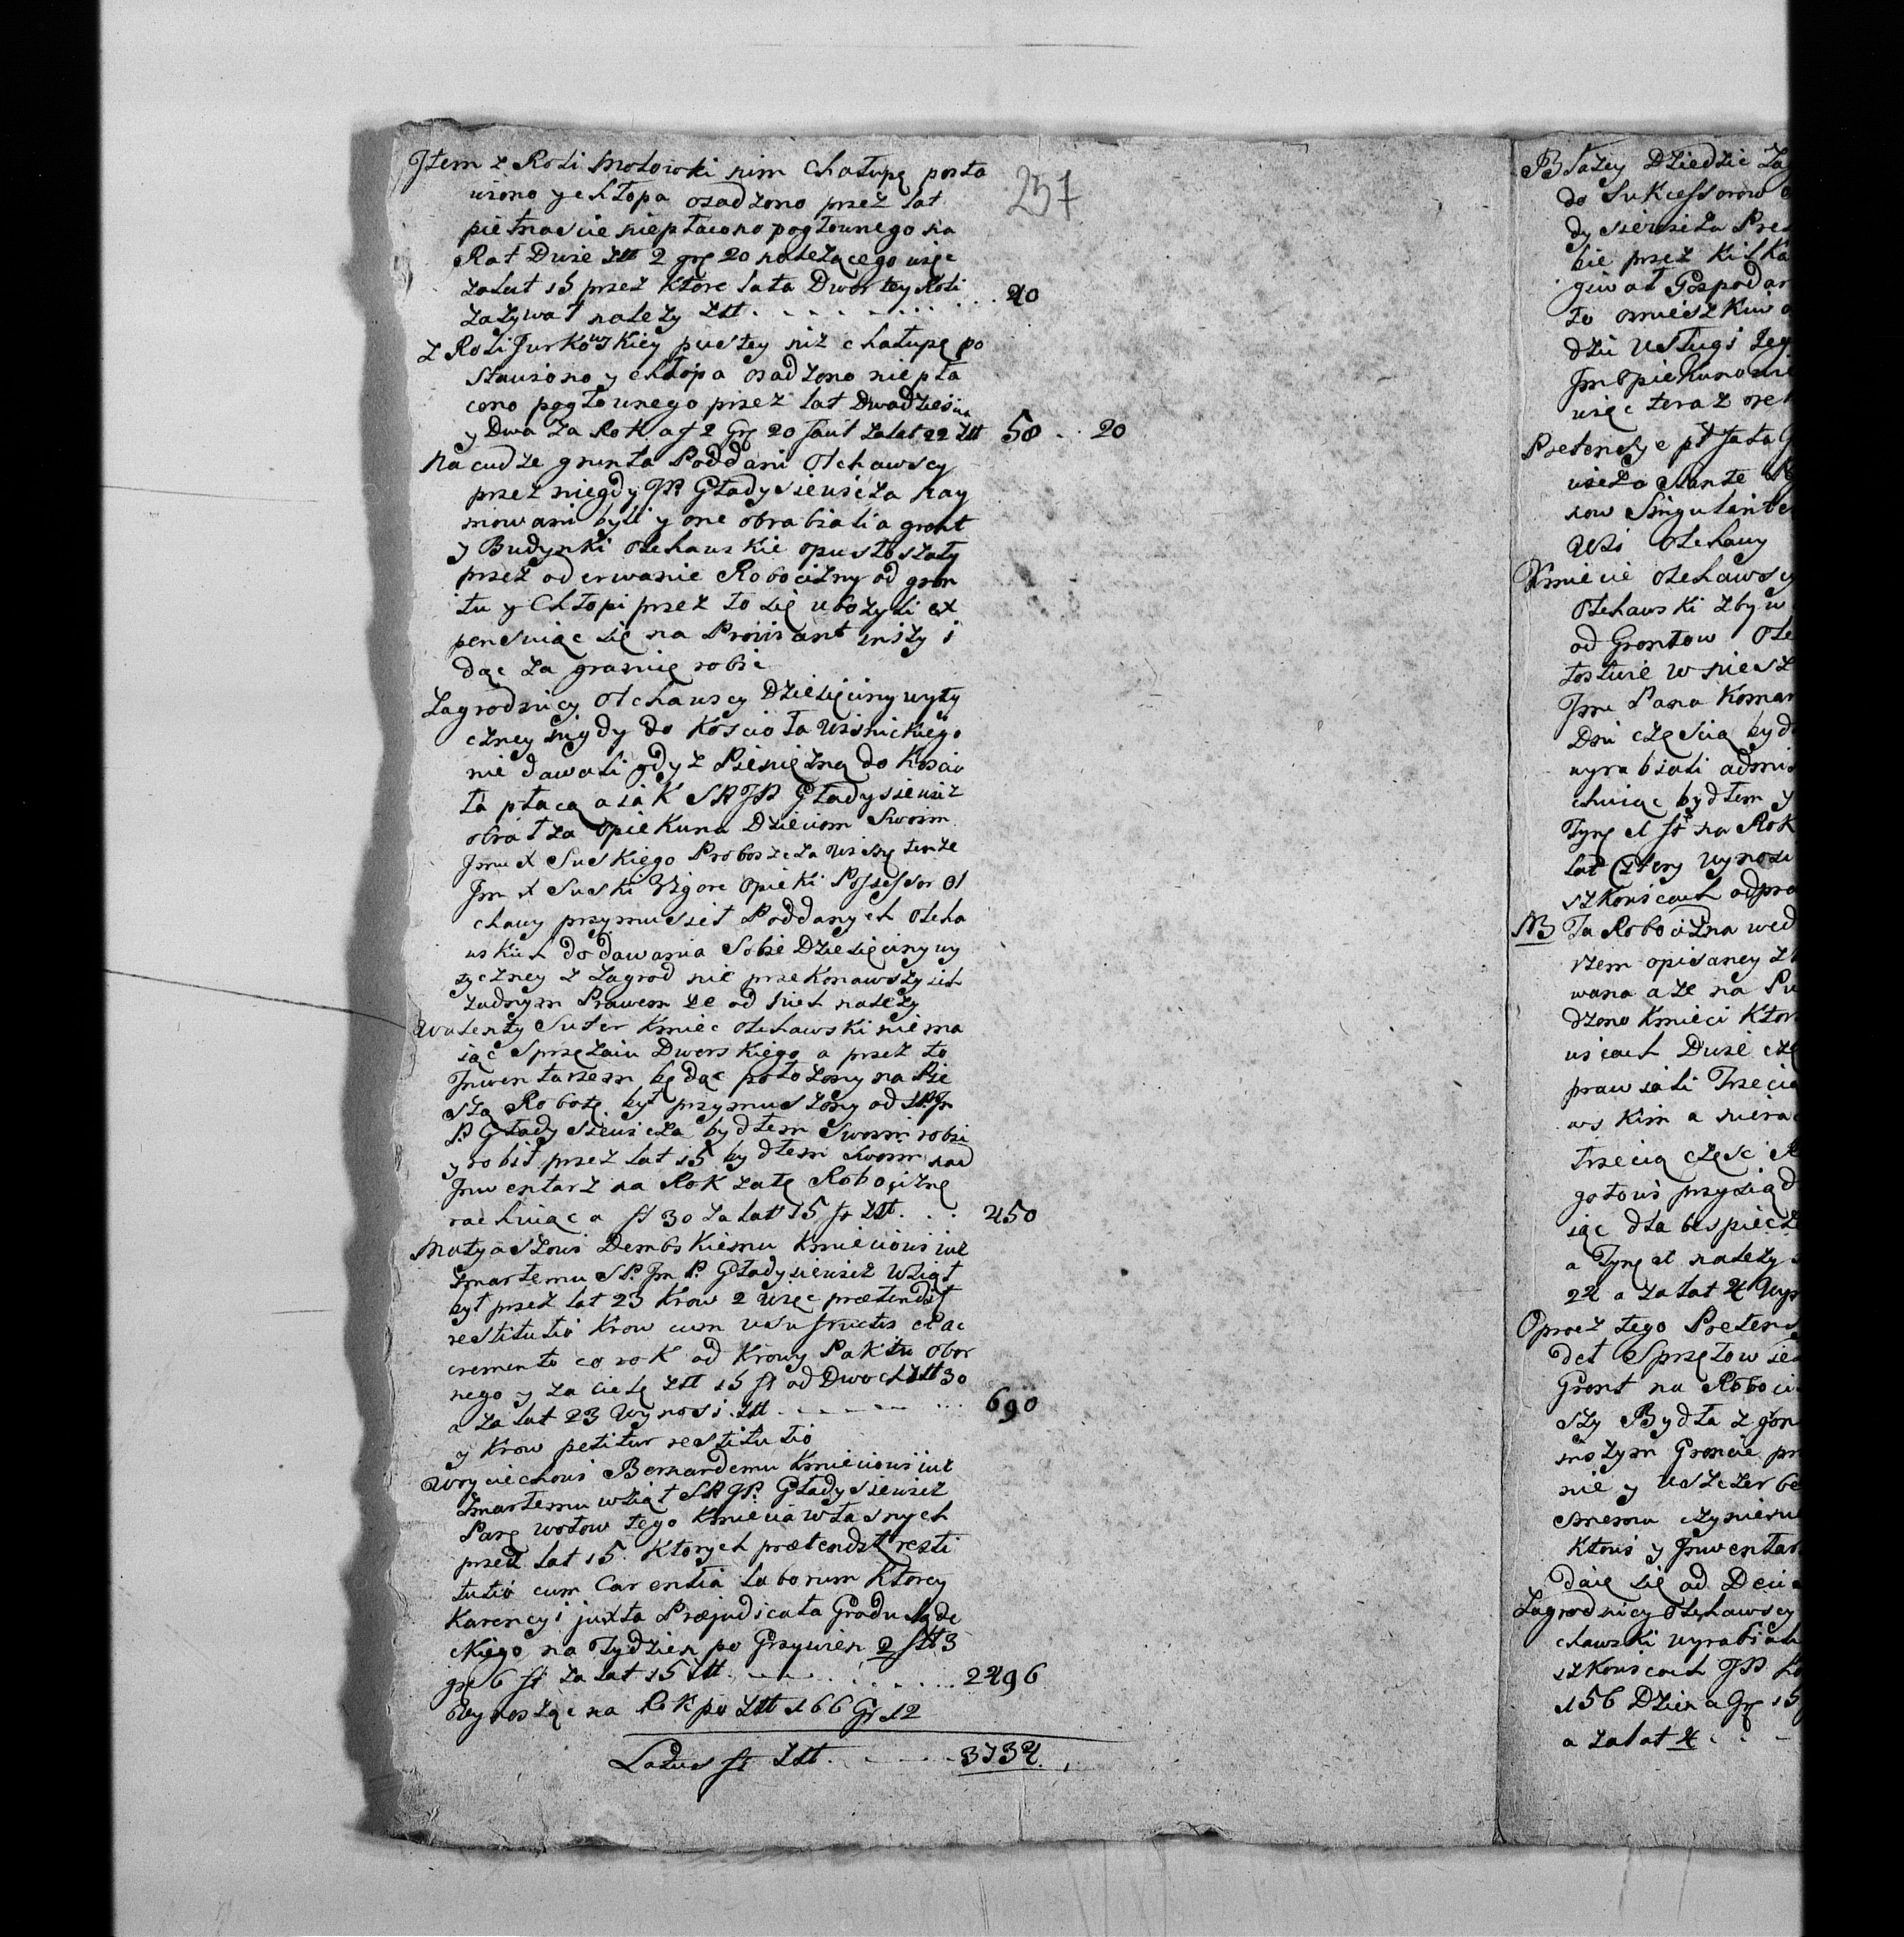 237
Item z Roli Molowki nim Chałupę posta
wiono y chłopa osadzono przez lat
pietnascie niepłacono pogłownego na
Rat Dwie Złł 2 grz 20 należącego więc
za lat 15 przez ktore lata Dwor tey Roli
zazywał nalezy Złł . . . . . . . 40
Z Roli Jurkowskiey pustey niz chałupę po
stawiono y chłopa osadzono niepła
cono pogłownego przez lat Dwadziescia
y Dwa za Rok a f 2 Grz 20 za lat 22 Złł 58 . . 20
Na cudze grunta Poddani Olchawscy
przez niegdy JP Gładysiewicza nay
mowani byli y one obrabiali a gront
y Budynki Olchawskie opustoszały
przez oderwanie Robocizny od gron
tu y Chłopi przez to się ubozyli ex
pensuiąc się na Prowiant inszy i
dąc za granicę robic
Zagrodnicy Olchawscy Dziesięciny wyty
czney nigdy do Koscioła Wisnickiego
nie dawali gdyz Pienięzną do Koscio
ła płacą a iak SP JP Gładysiewicz
obrał za Opiekuna Dzieciom Swoim
Jmci X Suskiego Proboszcza tenze
Jm X Suski Vigore Opieki Possessor Ol
chawy przymusieł Poddanych Olcha
wskich do dawania Sobie Dziesięciny wy
tyczney z Zagrod nie przekonawszy ich
zadnym Prawem ze od nich nalezy
Walenty Suter Kmiec Olchawski niema
iąc Sprzęzaiu Dworskiego a przez to
Inwentarzem będąc połozony na Pie
szą Robotę był przymuszony od SP Jm
P. Gładysiewicza bydłem Swoim robic
y robił przez lat 15 bydłem swoim nad
Inwentarz na Rok zatę Robociznę
rachuiąc a fl 30 za lat 15 Złł . . . 450
Matyaszowi Dembskiemu Kmieciowi iuz
zmarłemu SP. Jm P. Gładysiewicz Wziął
był przez lat 23 Krow 2 Więc prætendit
restitutio Krow cum usufructu et ac
cremento co rok od Krowy Paktu Obor
nego y za cielę Złł 15 fl od Dwoch Złł 30
a za lat 23 Wynosi Złł . . . . . 690
y Krow petitur restitutio
Woyciechowi Bernardemu Kmieciowi iuz
zmarłemu wziął SP JP. Gładysiewicz
Parę wołow tego Kmiecia własnych
przez lat 15. Ktorych prætendit resti
tutio cum Carentia laborum Ktorey
Karencyi juxta Præjudicata Grodu Sąde
ckiego na Tydzien po Grzywien 2 Złł 3
grz 6 fl za lat 15 Złł . . . . . . 2496
Wynosząc na Rok po Złł 166 Gr 12
Latus fl Złł . . . . 3734.
Błazey Dziedzic Za
do Sukcessorow
dysiewicza Pre
bie przez Kilka
giwał Gospodar
to omieszkiw
dzii Usługi Jey
Jm Opiekunowie
więc teraz
Pretensye
wieza
row Singulariter
Wsi Olchawy
Kmiecie Olchawscy
Olchawski zbyw
od Grontow Ole
łostwie w niesz
Jm Pana Komar
Dni częscią byd
wyrabiali admi
chuiąc bydłem y
Tynę a fl na Rok
lat Cztery Wynosi
szkowicach odpra
NB Ta Robocizna wed
rzem opisaney
wana a ze na Pu
dzono Kmieci Ktor
wicach Dwie czę
prawiali Trzecią
wskim a niera
trzecią częsc
gotowi przysiąd
iąc dla bespiecze
a Tynę a nalezy
22 a za lat 4 Wyn
Oprocz tego Preten
det Sprzętow ie
Gront na Roboci
szy Bydła z gon
nszym Groncie pr
nie y Uszczerbe
cznemu czynieni
Ktowi y Inwentar
daie się od Deci
Zagrodnicy Olchawscy
chawski wyrabiali
szkowicach JP
156 Dzien a Gr 15
a za lat 4 . . .